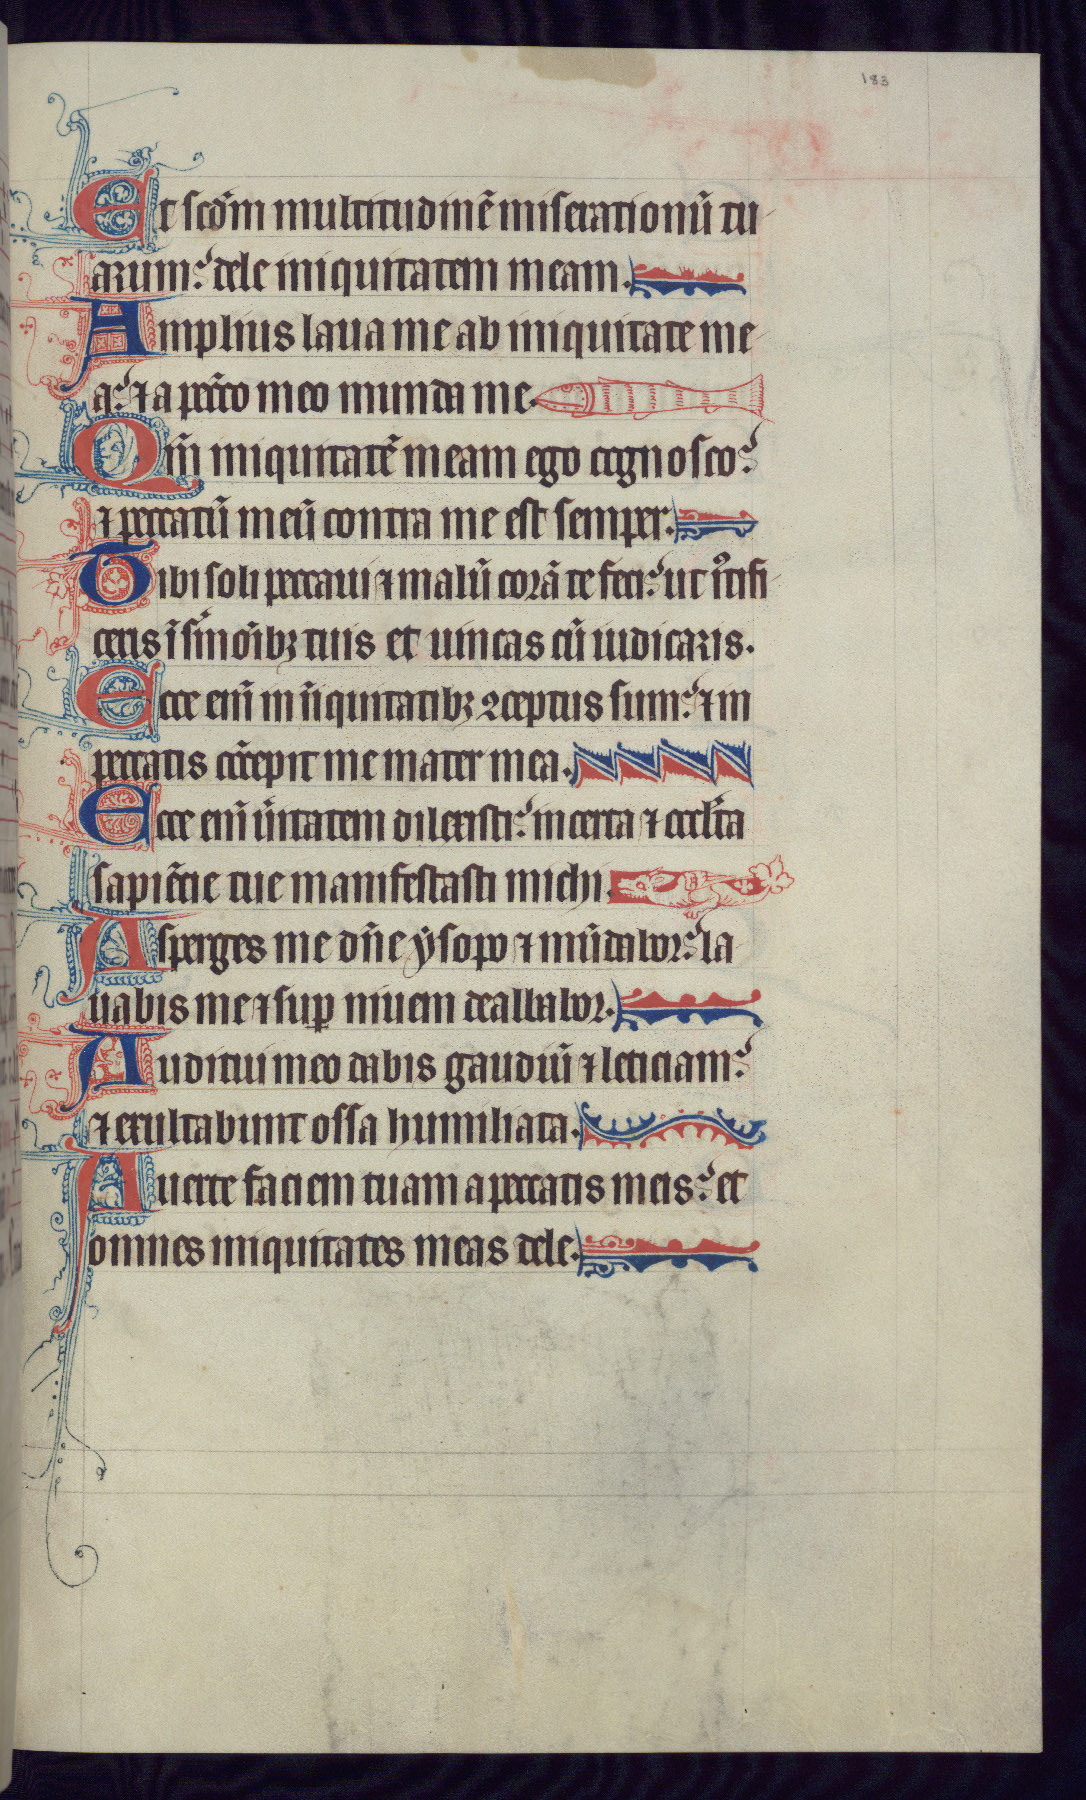 183
Et scd̄m multitudinē miserationū tu
arum: dele iniquitatem meam.
Amplius laua me ab iniquitate me
a: ⁊ a pcc̄o meo munda me.
Qm̄ iniquitatē meam ego cognosco:
⁊ peccatū meū contra me est semper.
Tibi soli peccaui ⁊ malū corā te feci: ut iᷤtifi
ceris ī ẜmōībꝫ tuis et uincas cū iudicaris.
Ecce eni̅ in iniquitatibꝫ ꝯceptus sum: ⁊ in
peccatis cōcepit me mater mea.
Ecce eni̅ ūitatem dilexisti: incerta ⁊ occl̄ta
sapiēcie tue manifestasti michi.
Asperges me dn̄e ẏsopo ⁊ mūdabor: la
uabis me ⁊ suꝑ niuem dealbabor.
Auditui meo dabis gaudiū ⁊ leticiam:
⁊ exultabunt ossa humiliata.
Auerte faciem tuam a peccatis meis: et
omnes iniquitates meas dele.